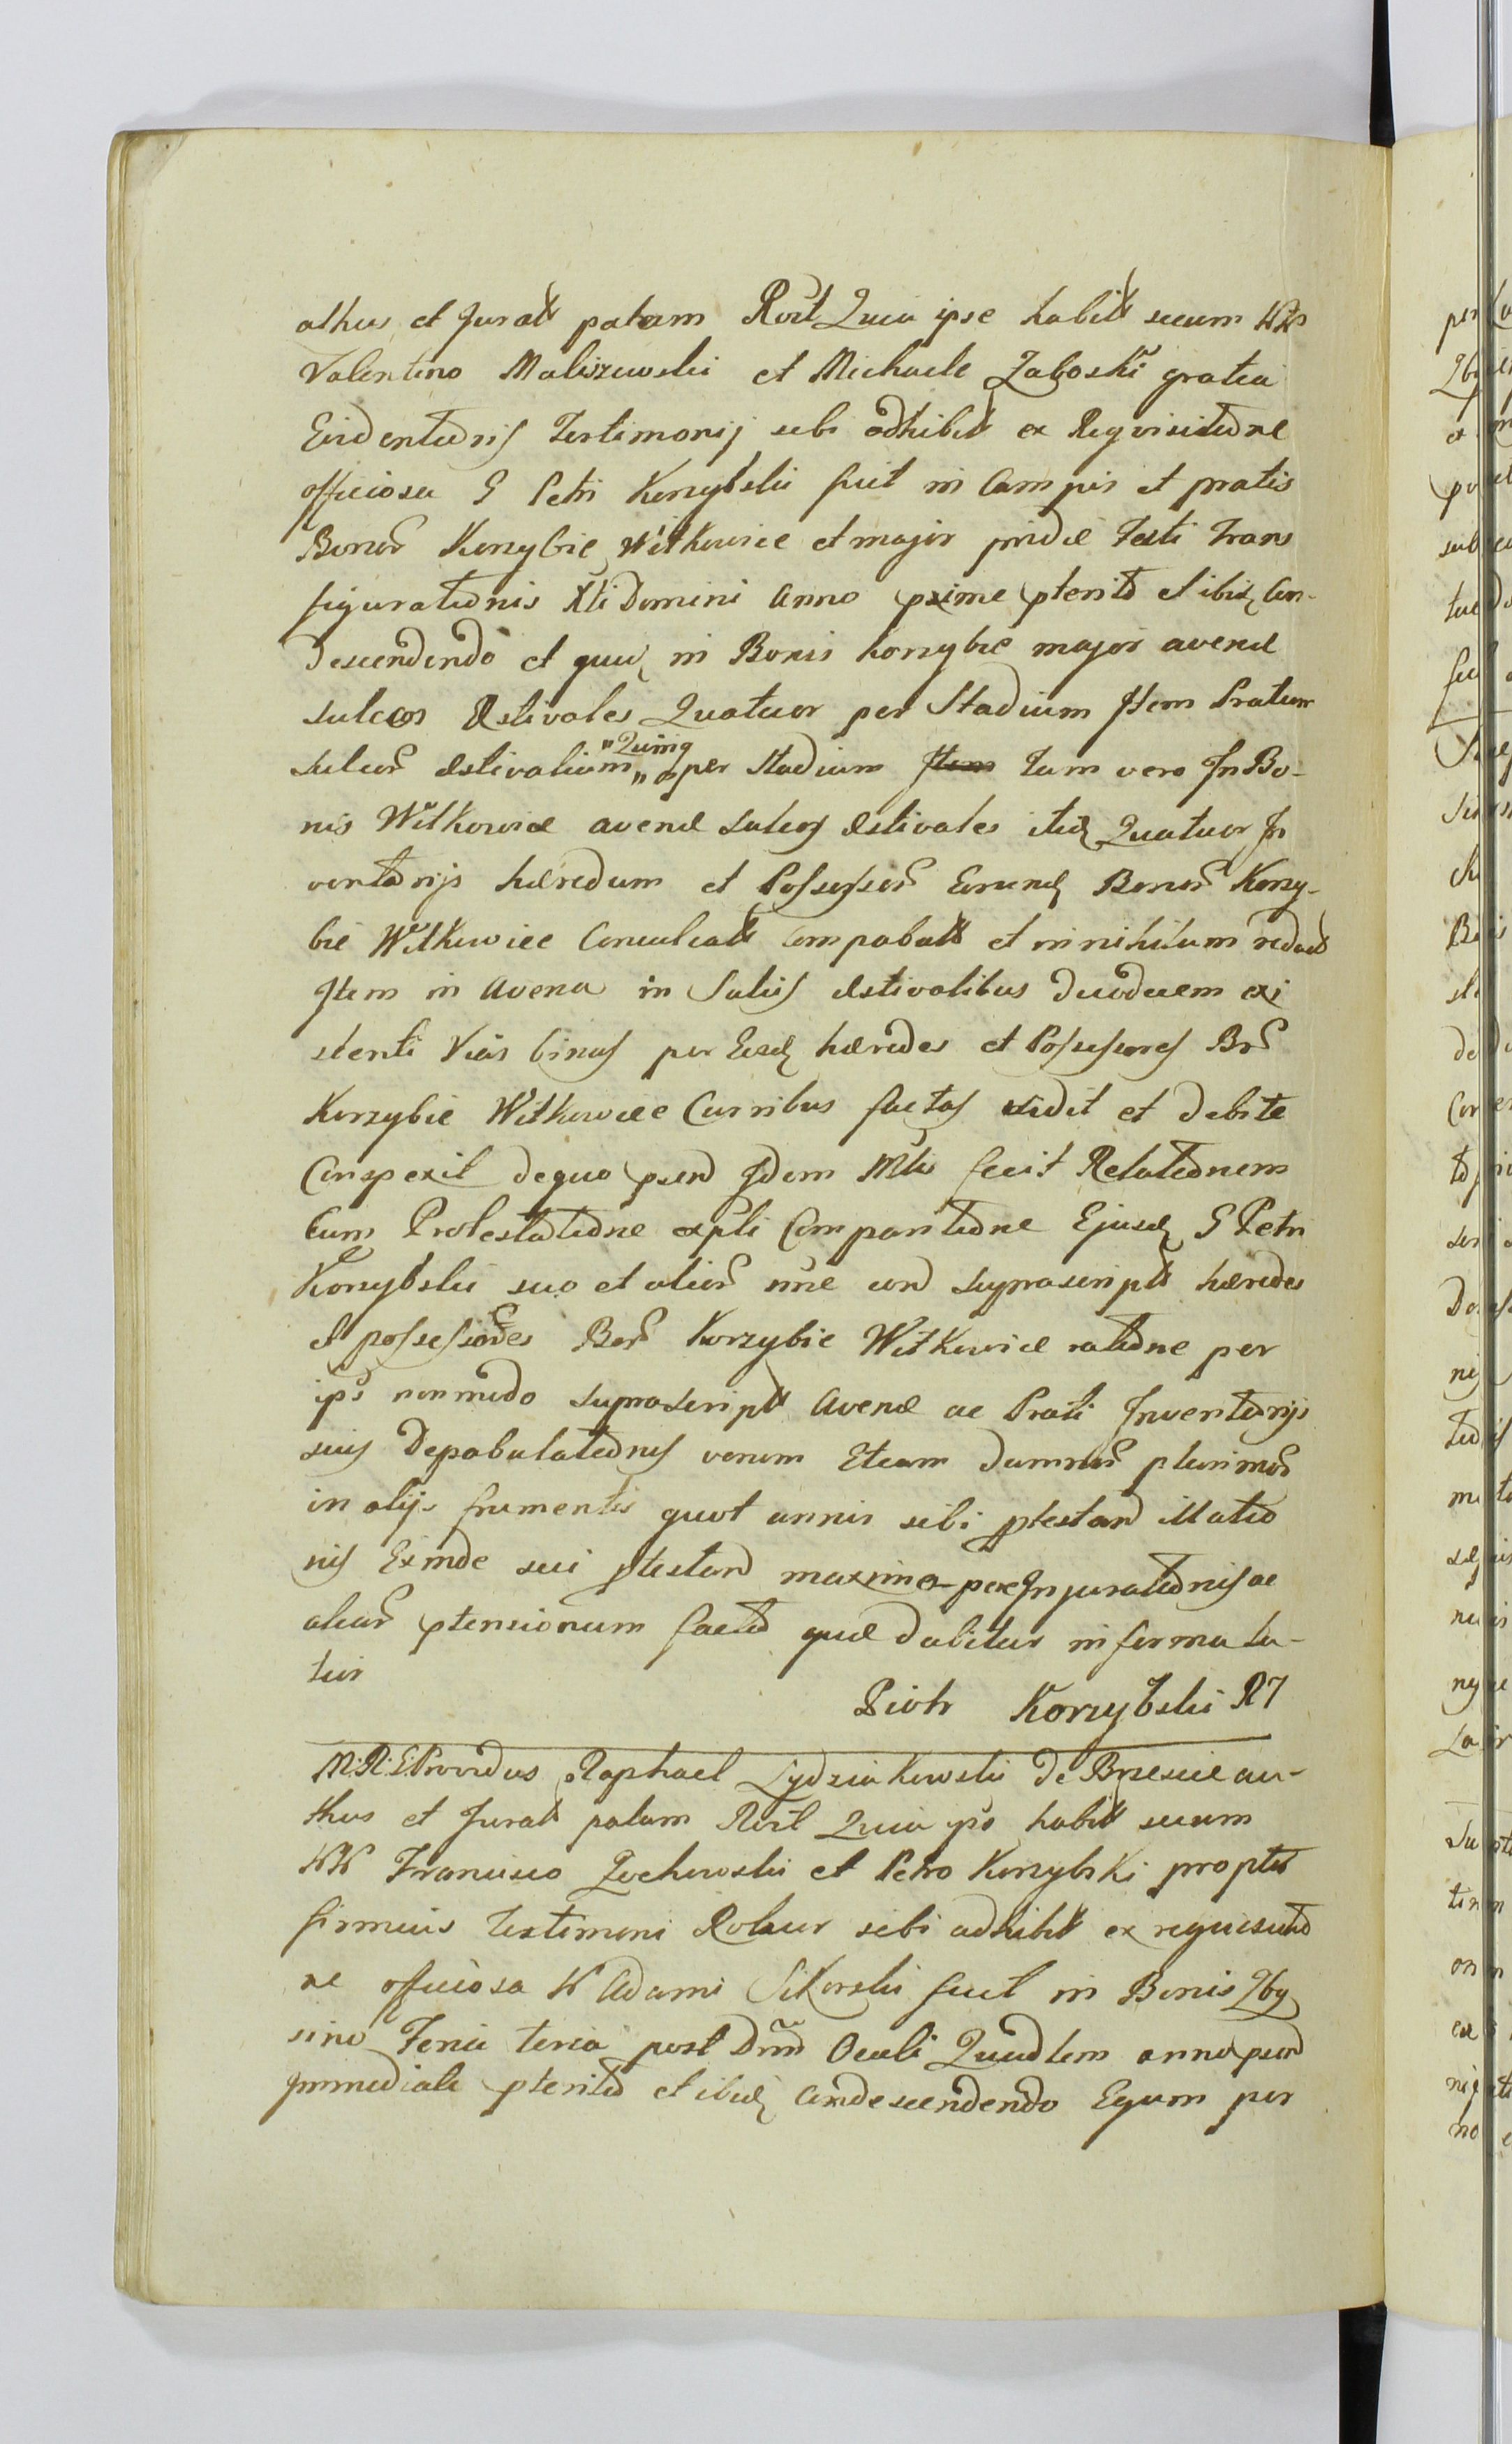 athus et Jurats palam Rort Quia ipse habits secum NN
Valentino Maliszewski et Michaele Zaboski gratia
Evidentionis Testimonij sibi adhibits ex Requisitione
officiosa G Petri Korzybski fuit in Campis et pratis
Bonor Korzybie Witkowice et major pridie Festi Trans
figurationis Xti Domini Anno pxime pterito et ibid Con-
Descendendo et quid in Bonis Korzybie major avenæ
sulcos Æstivales Quatuor per Stadium Item Pratum
sulcor æstivalium "Quinq" per Stadium Tum vero In Bo-
nis Witkowice avenæ sulcos æstivales itid Quatuor In
ventarijs hæredum et Possessor Eorund Bonor Korzy-
bie Witkowice Conculcats Compabats et in nihilum redacts
Item in Avena in Sulcis Æstivalibus Duodecem exi
stenti Vias binas per Eosd hæredes et Possessores Br
Korzybie Witkowice Curribus factas vidit et debite
Conspexit de quo psend Idem Mlis fecit Relationem
Cum Protestatione expli Comparitione Ejusd G Petri
Korzybski suo et alior nne cond suprascripts hæredes
et possessiores Bor Korzybie Witkowice ratione per
ips nonmodo suprascripts Avenæ ac Prati Inventarijs
suis Depabulationis verum Etiam damnor plurimor
in alijs frumentis quot annis sibi ptestand illatio
nis Exinde sui ptestand maxime per Injurationis ac
aliar ptensionum facto quæ dabitur in forma la-
tiori
Piotr Korzybski R7
M: R: E: Providus Raphael Zydziakowski De Brzescie au-
thus et Jurats palam Rort Quia ips habits secum
NN Francisco Zochowski et Petro Korzybski propter
firmius testimoni Robur sibi adhibits ex requisitio
ne officiosa N Adami Sikorski fuit in Bonis Zby
sino Feria tercia post Dnnd Oculi Quadlem anno psend
Immediate pterito et ibid Condescendendo Equm per